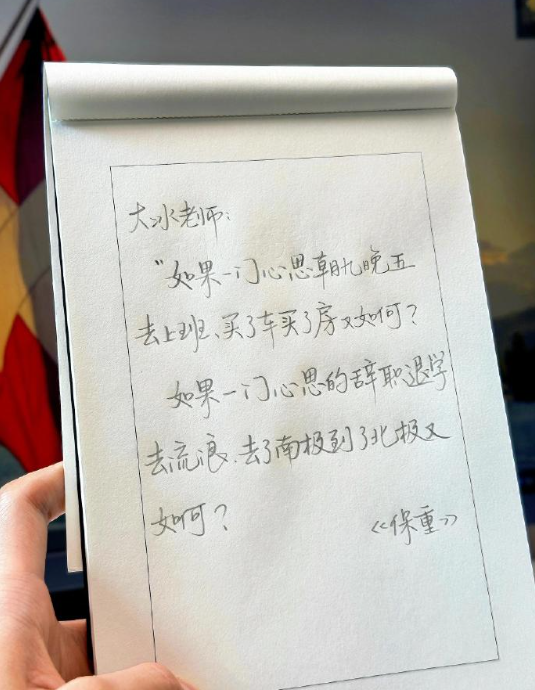 大冰老师：
“如果一门心思朝九晚五
去上班、买了车买了房又如何？
如果一门心思的辞职退学
去流浪、去了南极到了北极又
如何？ 《保重》